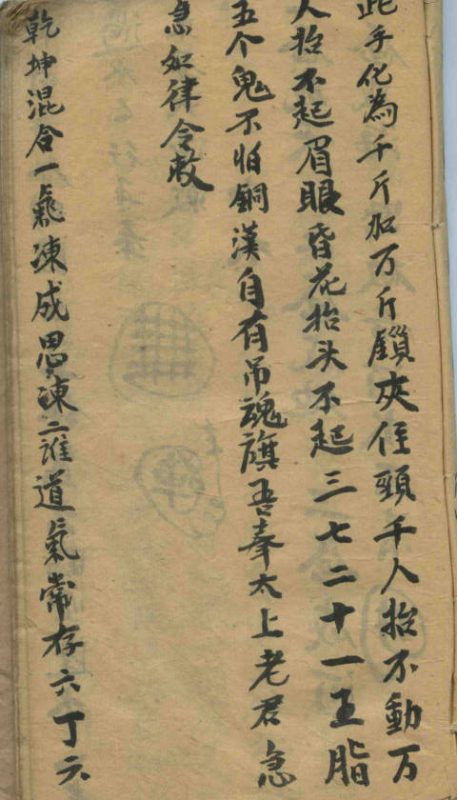 此手化為千斤加万斤鎖夾住頸千人抬不動万
人抬不起眉眼昏花抬头不起三七二十一王脂
五个鬼不怕銅漢自有吊魂旗吾奉太上老君急
急如律令敕
乾坤混合一氣凍成思凍二誰道氣常存六丁六